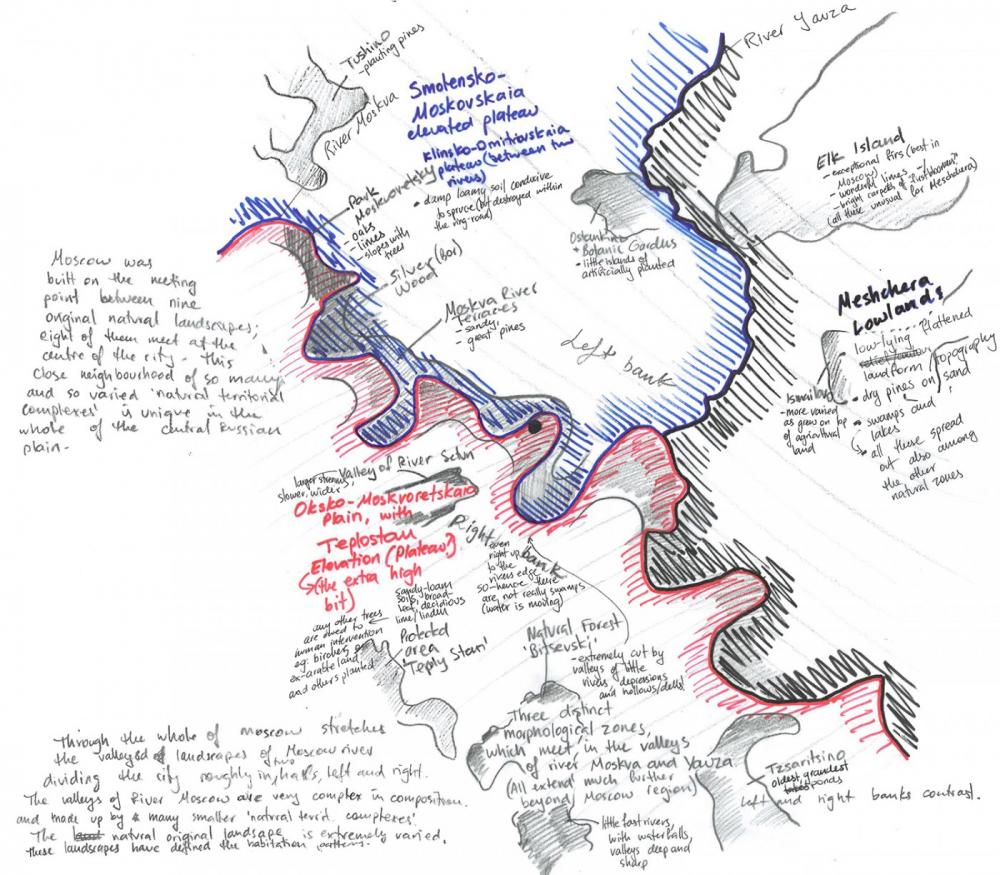 River Yauza
Tushino
-planting pines
River Moskva
Smolensko-
Moskovskaia
elevated plateau
Klinsko-Dmitrovskaia
plateau (between two
rivers)
• damp loamy soil conducive
to spruce (but destroyed within
the ring-road)
Park
Moskvoretsky
- oaks
- limes
- slopes with
trees
Silver (Bor)
Wood
Moskva River
terraces
- sandy,
- great pines
Elk Island
- exceptional firs (best in
Moscow)
- wonderful limes
- bright carpets of
(all these unusual for Meshchera)
Ostankino
+ Botanic Gardens
• little islands of
artificially planted
Left bank
Meshchera
Lowlands
low-lying flattened
landform topography
• dry pines on sand
• swamps and
lakes
all these spread
out also among
the other
natural zones
Ismailovo
- more varied
as grew on top
of agricultural
land
Moscow was
built on the meeting
point between nine
original natural landscapes;
eight of them meet at the
centre of the city. This
close neighbourhood of so many
and so varied 'natural territorial
complexes' is unique in the
whole of the central Russian
plain.
Valley of River Setun
larger streams,
slower, wider
Oksko-Moskvoretskaia
Plain, with
Teplostan
Elevation (Plateau)
(the extra high
bit)
Right bank
even
right up
to the
rivers edge
so hence there
are not really swamps
(water is moving)
sandy-loam
soils, broad-
leaf, decidious
lime/linden
any other trees
are owed to
human intervention
eg: birches,
ex-arable land
and others planted
Protected
area
'Teply Stan'
Natural Forest
'Bitsevski'
- extremely cut by
valleys of little
rivers, depressions
and hollows/dells!
Three distinct
morphological zones,
which meet, in the valleys
of river Moskva and Yauza.
(All extend much further
beyond Moscow region)
little fast rivers,
with waterfalls,
valleys deep and
sharp
Tzsaritsino
oldest grandest
ponds
Left and right banks contrast.
Through the whole of moscow stretches
the valleyed landscapes of Moscow river
dividing the city roughly in two halfs, left and right.
The valleys of River Moscow are very complex in composition.
and made up by many smaller 'natural territ. complexes'.
The natural original landscape is extremely varied.
these landscapes have defined the habitation patterns.